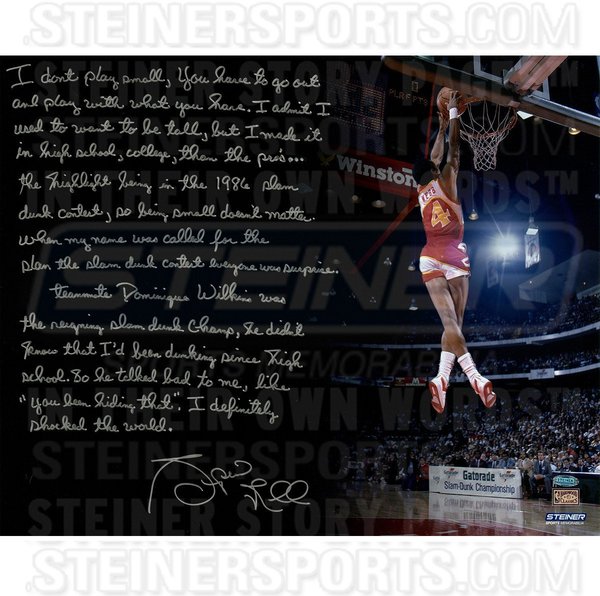 .STEINERSPORTS.COM
I don't play small, you have to go out
and play with what you have. I admit I
used to want to be tall, but I made it
in high school, college, than the pro's...
the highlight being in the 1986 slam
dunk contest, so being small doesn't matter.
When my name was called for the
slan the slam dunk contest everyone was surprise.
teammate Dominique Wilkins was
the reigning slam dunk Champ, he didn't
know that I'd been dunking since high
school. So he talked bad to me, like
"you been hiding that". I definitely
shocked the world.
Spud Webb
Winston
WEBB
4
Gatorade
Slam-Dunk Championship
STEINER
SPORTS MEMORABILIA
STEINER
SPORTS MEMORABILIA
STEINER STORY PAGE
IN THEIR OWN WORDS™
.STEINERSPORTS.COM